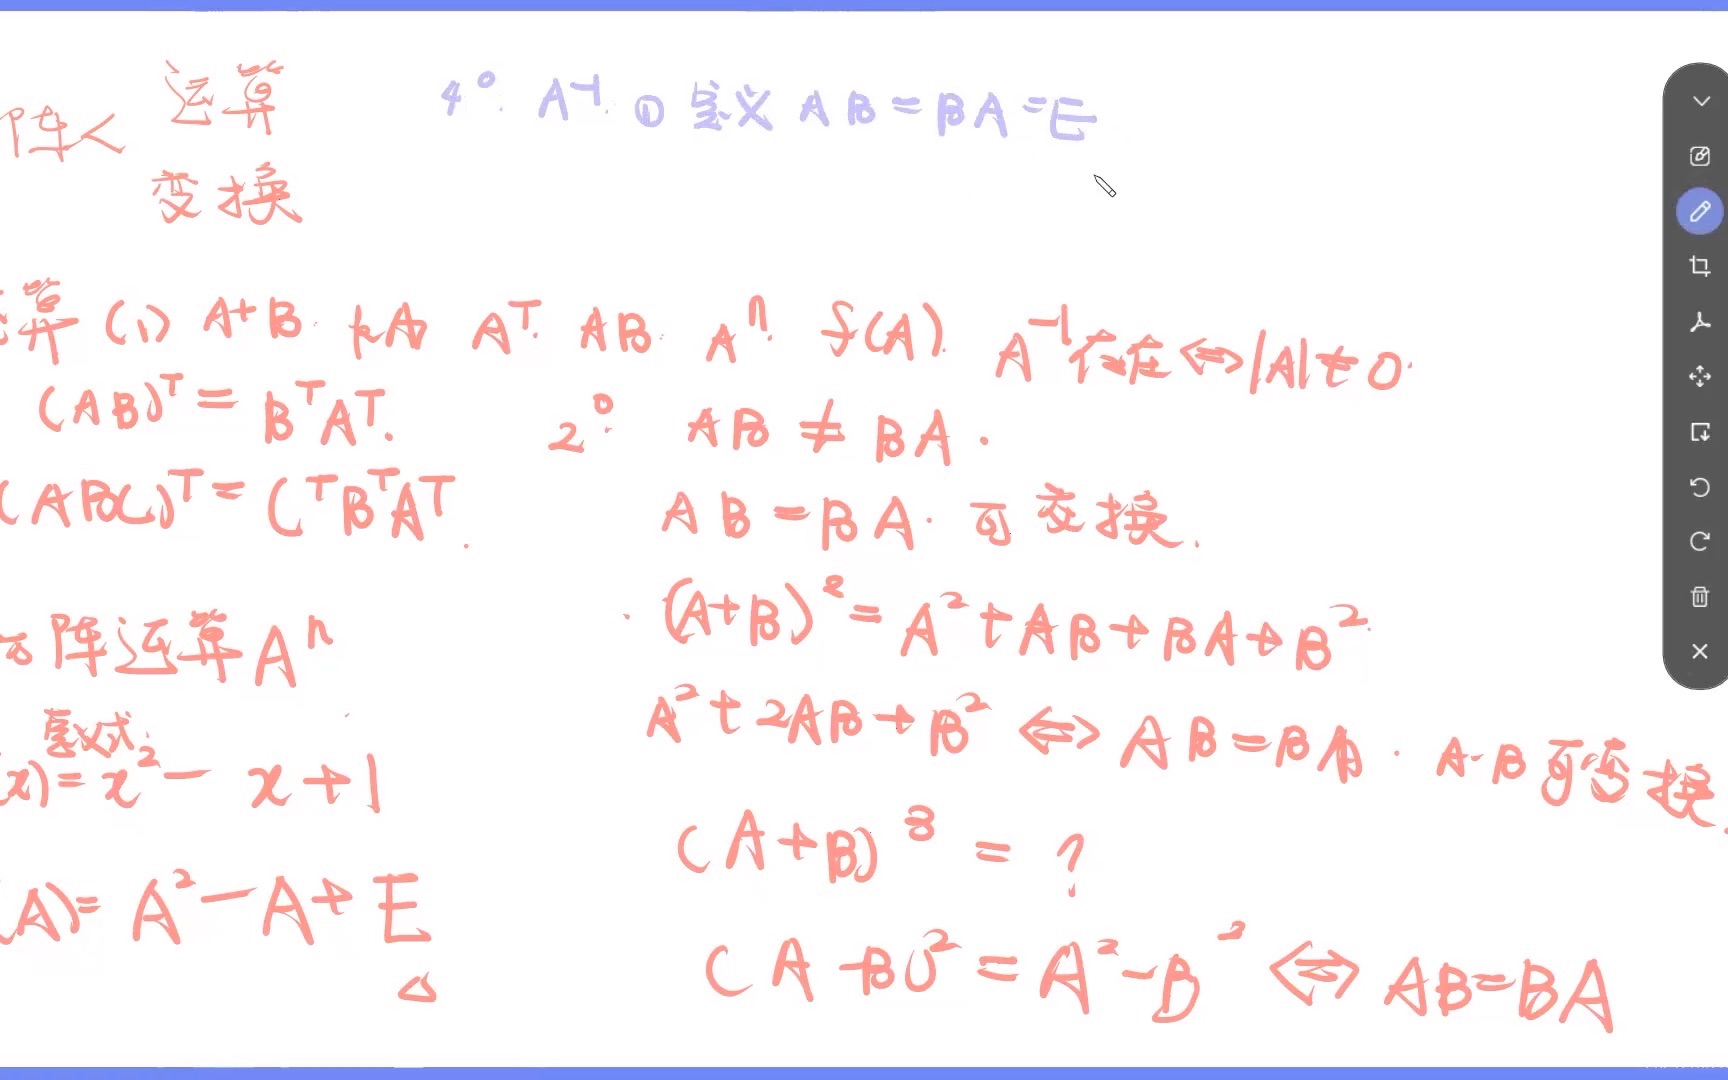 阵 运算
变换
4°. A⁻¹. ① 定义 AB=BA=E
算 (1) A+B. kA Aᵀ. AB. Aⁿ. f(A). A⁻¹存在⇔|A|≠0.
(AB)ᵀ=BᵀAᵀ.
2°. AB≠BA.
(ABC)ᵀ=CᵀBᵀAᵀ.
AB=BA. 可交换.
(A+B)²=A²+AB+BA+B².
阵运算Aⁿ
A²+2AB+B²⇔AB=BA. A.B可交换.
意义式:
x)=x²-x+1
(A+B)³=?
A)=A²-A+E
(A-B)²=A²-B²⇔AB=BA